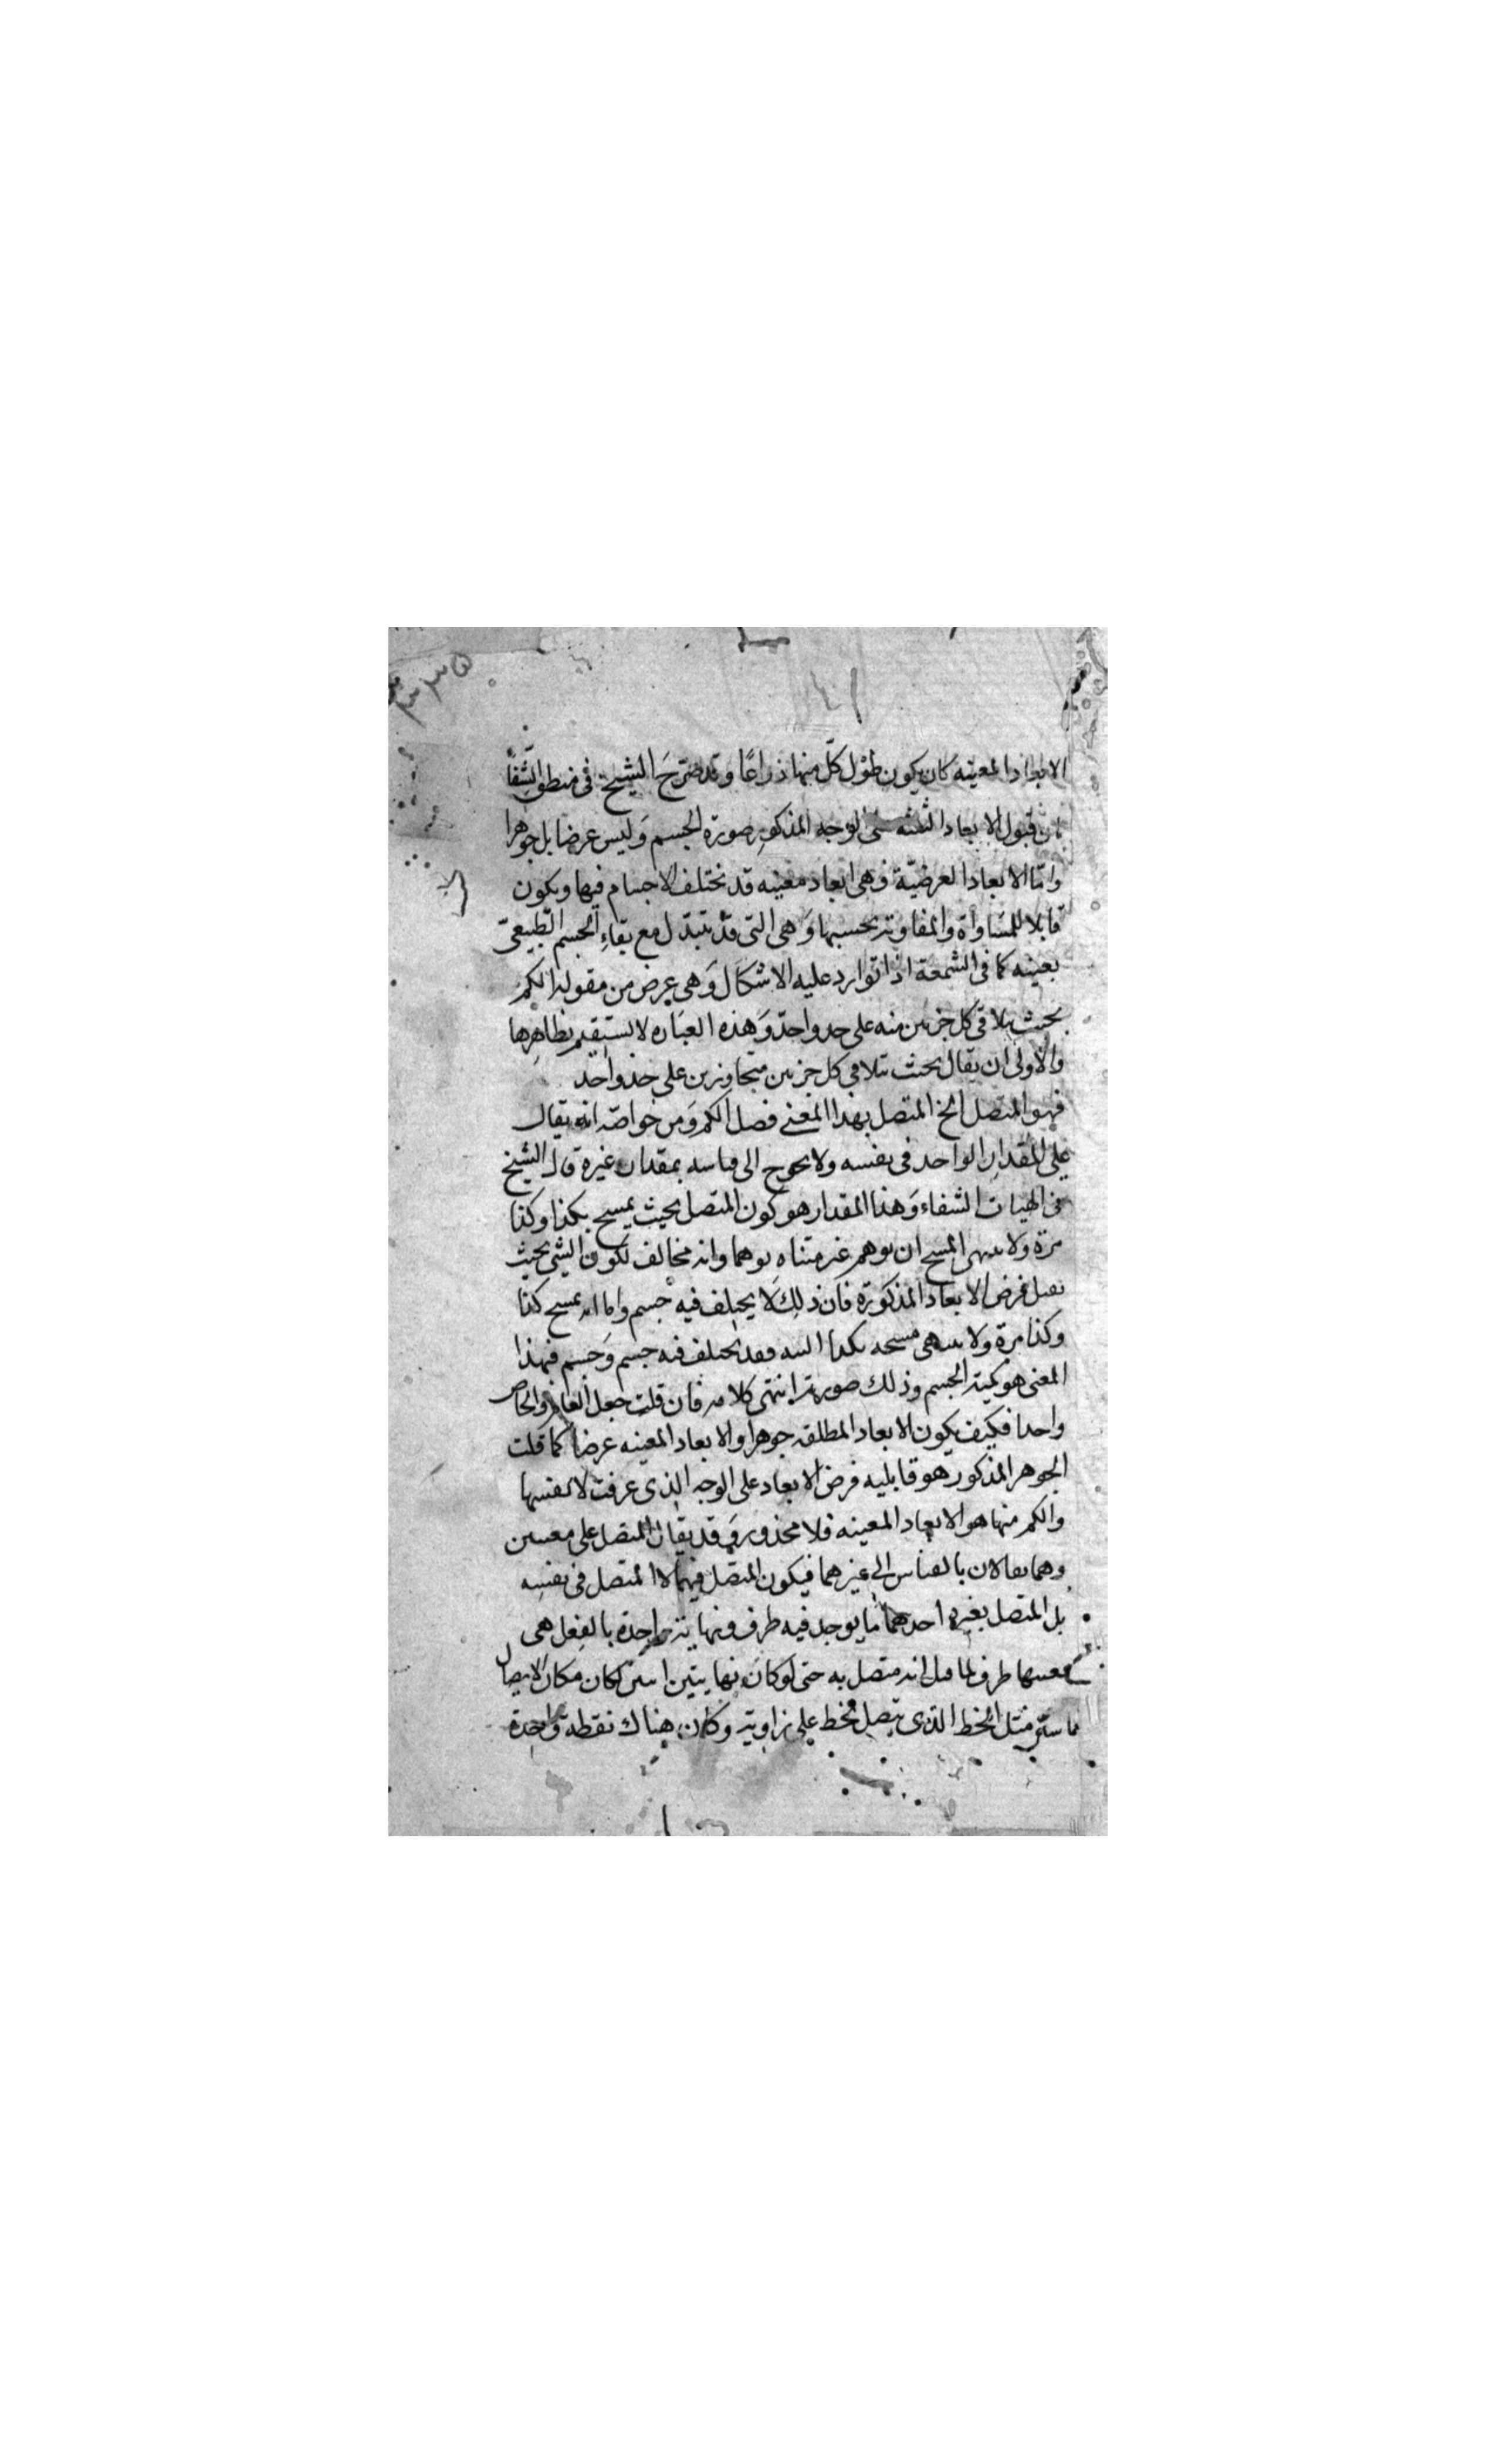 الابعاد المعينه كان يكون طول كل منها ذراعًا وقد صرّحَ الشيخ فى منطق الشّفا
بان قبول الابعاد الثلثه على الوجه المذكورِ صورة الجسم وَليس عرضا بل جوهرا
وامّا الابعاد العرضيّة وهى ابعاد معينه قد تختلف الاجسام فيها ويكون
قابلا للمسَاواة والمفاوتة بحسبها وَهى التى قدْ تتبدّل مع بقاءِ الجسم الطّبيعىّ
بعينه كما فى الشمعة اذا توارد عليه الاشكال وَهى عرض من مقولة الكم
بحيث يلاقى كل جزءين منه على حد واحد وَهذه العبَاره لا يستقيم بظاهرِها
والاولى ان يقال بحيث يتلاقى كل جزءين متجاورين على حد واحد
فهو المتصل الخ المتصل بهذا المعنى فصل الكم وَمن خواصّه انه يقال
على المقدار الواحد فى نفسه ولا يحوج الى قياسه بمقدار غيره قال الشيخ
فى الهيات الشفاء وَهذا المقدار هو كون المتصل بحيث يمسح بكذا وكذا
مرّة ولا ينتهى المسح ان توهم غير متناه توهما وانه مخالف لكون الشئ بحيث
يقبل فرض الابعاد المذكورة فان ذلك لَا يختلف فيه جسم واما انه يمسح كذا
وكذا مرة ولا ينتهى مسحه بكذا البته فقد يختلف فيه جسم وَجسم فهذا
المعنى هو كمية الجسم وذلك صورته انتهى كلامه فان قلت جعل العام والخاص
واحدا فكيف يكون الابعاد المطلقه جوهرا والابعاد المعينه عرضا كما قلت
الجوهر المذكور هو قابليه فرض الابعاد على الوجه الذى عرفت لا نفسها
والكم منها هو الابعاد المعينه فلا محذور وَقد يقال المتصل على معنيين
وهما يقالان بالقياس الى غيرهما فيكون المتصل فيهما لا المتصل فى نفسِه
بل المتصل بغيره احدهما ما يوجد فيه طرف ونهاية واحدة بالفعل هى
بعينها طرف لما قيل انه متصل به حتى لو كان نهايتين اثنتين لكان مكان الاتصال
مماسّة مثل الخط الذى يتصل بخط على زاوية وكان هناك نقطة واحدة